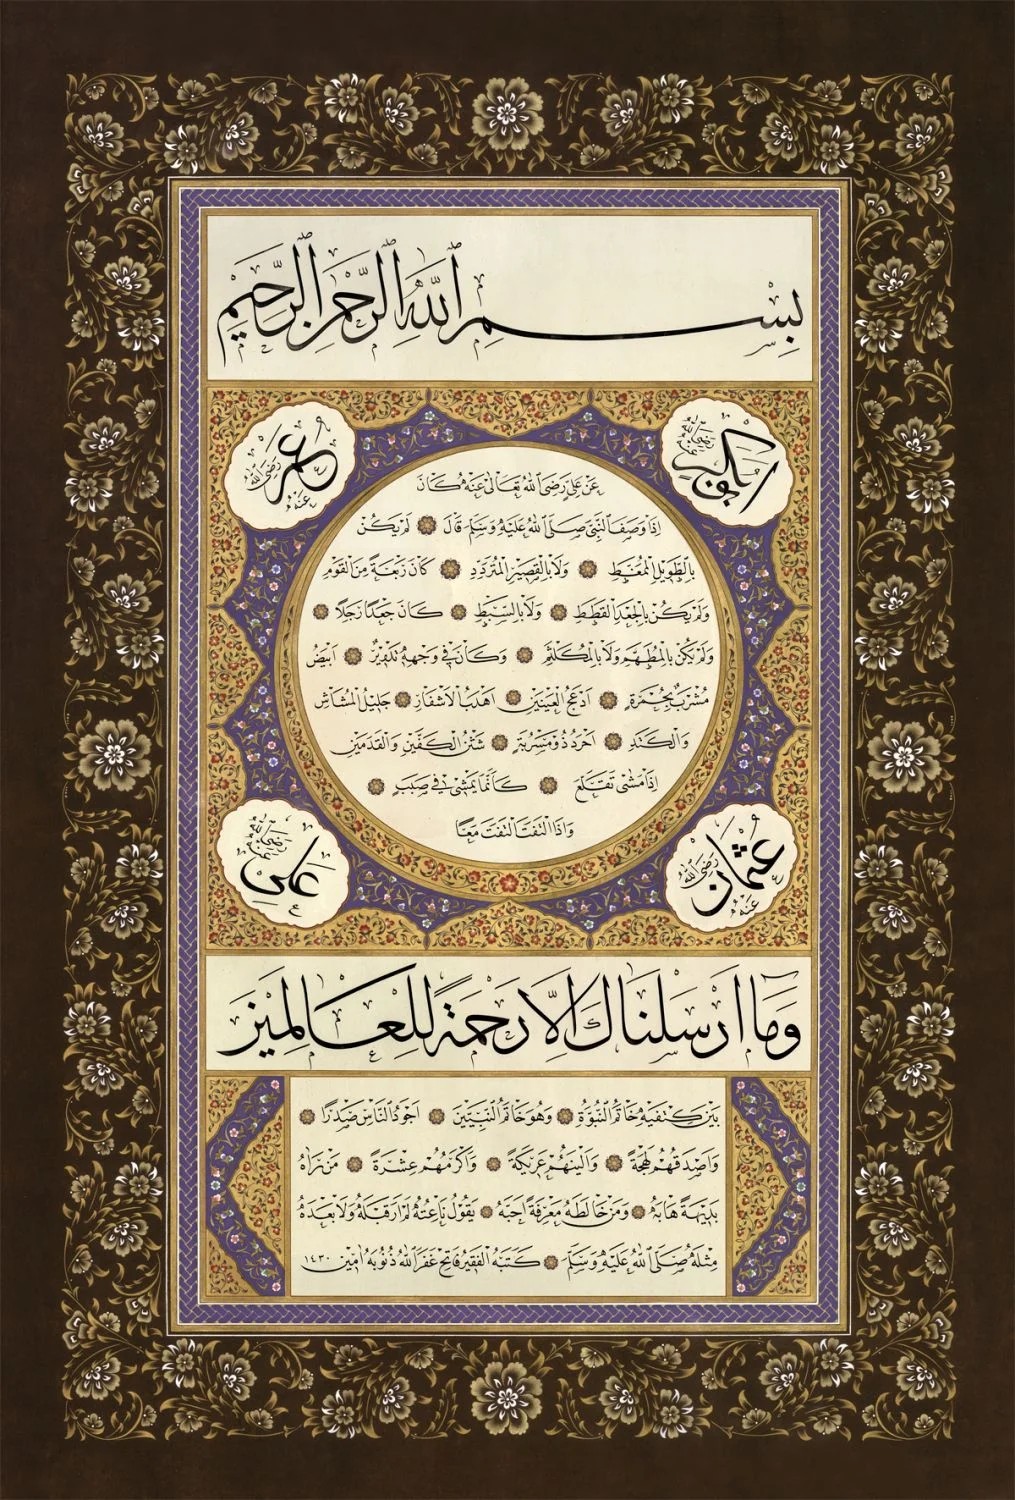 بِسْمِ اللّٰهِ الرَّحْمٰنِ الرَّحِيمِ
ابوبكر رضي الله عنه
عمر رضي الله عنه
عَنْ عَلِيٍّ رَضِيَ اللهُ تَعَالٰى عَنْهُ كَانَ
اِذَا وَصَفَ النَّبِيَّ صَلَّى اللهُ عَلَيْهِ وَسَلَّمَ قَالَ ۞ لَمْ يَكُنْ
بِالطَّوِيلِ الْمُمَّغِطِ ۞ وَلَا بِالْقَصِيرِ الْمُتَرَدِّدِ ۞ كَانَ رَبْعَةً مِنَ الْقَوْمِ
وَلَمْ يَكُنْ بِالْجَعْدِ الْقَطَطِ ۞ وَلَا بِالسَّبِطِ ۞ كَانَ جَعْدًا رَجِلًا ۞
وَلَمْ يَكُنْ بِالْمُطَهَّمِ وَلَا بِالْمُكَلْثَمِ ۞ وَكَانَ فِي وَجْهِهِ تَدْوِيرٌ ۞ اَبْيَضُ
مُشْرَبٌ بِحُمْرَةٍ ۞ اَدْعَجُ الْعَيْنَيْنِ ۞ اَهْدَبُ الْاَشْفَارِ ۞ جَلِيلُ الْمُشَاشِ
وَالْكَتَدِ ۞ اَجْرَدُ ذُو مَسْرُبَةٍ ۞ شَثْنُ الْكَفَّيْنِ وَالْقَدَمَيْنِ
اِذَا مَشٰى تَقَلَّعَ ۞ كَاَنَّمَا يَمْشِي فِي صَبَبٍ ۞
وَاِذَا الْتَفَتَ الْتَفَتَ مَعًا
عثمان رضي الله عنه
علي رضي الله عنه
وَمَا اَرْسَلْنَاكَ اِلَّا رَحْمَةً لِلْعَالَمِينَ
بَيْنَ كَتِفَيْهِ خَاتَمُ النُّبُوَّةِ ۞ وَهُوَ خَاتَمُ النَّبِيِّينَ ۞ اَجْوَدُ النَّاسِ صَدْرًا ۞
وَاَصْدَقُهُمْ لَهْجَةً ۞ وَاَلْيَنُهُمْ عَرِيكَةً ۞ وَاَكْرَمُهُمْ عِشْرَةً ۞ مَنْ رَاٰهُ
بَدِيهَةً هَابَهُ ۞ وَمَنْ خَالَطَهُ مَعْرِفَةً اَحَبَّهُ ۞ يَقُولُ نَاعِتُهُ لَمْ اَرَ قَبْلَهُ وَلَا بَعْدَهُ
مِثْلَهُ صَلَّى اللهُ عَلَيْهِ وَسَلَّمَ ۞ كَتَبَهُ الْفَقِيرُ فَاتِح غَفَرَ اللهُ ذُنُوبَهُ اٰمِين ١٤٣٠